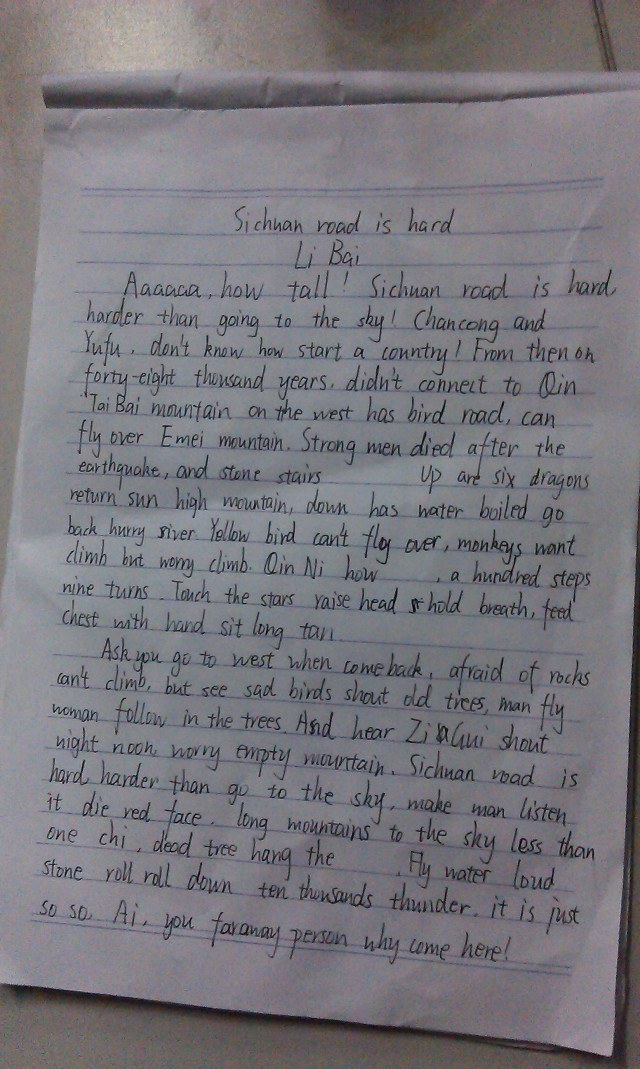 Sichuan road is hard
Li Bai
Aaaaaa, how tall! Sichuan road is hard,
harder than going to the sky! Chancong and
Yufu, don't know how start a country! From then on
forty-eight thousand years, didn't connect to Qin
Tai Bai mountain on the west has bird road, can
fly over Emei mountain. Strong men died after the
earthquake, and stone stairs Up are six dragons
return sun high mountain, down has water boiled go
back hurry river. Yellow bird can't fly over, monkeys want
climb but worry climb. Qin Ni how , a hundred steps
nine turns. Touch the stars raise head hold breath, feed
chest with hand sit long tan
Ask you go to west when come back, afraid of rocks
can't climb, but see sad birds shout old trees, man fly
woman follow in the trees. And hear Zi Gui shout
night noon, worry empty mountain. Sichuan road is
hard, harder than go to the sky, make man listen
it die red face. long mountains to the sky less than
one chi, dead tree hang the . Fly water loud
stone roll roll down ten thousands thunder. it is just
so so. Ai, you faraway person why come here!